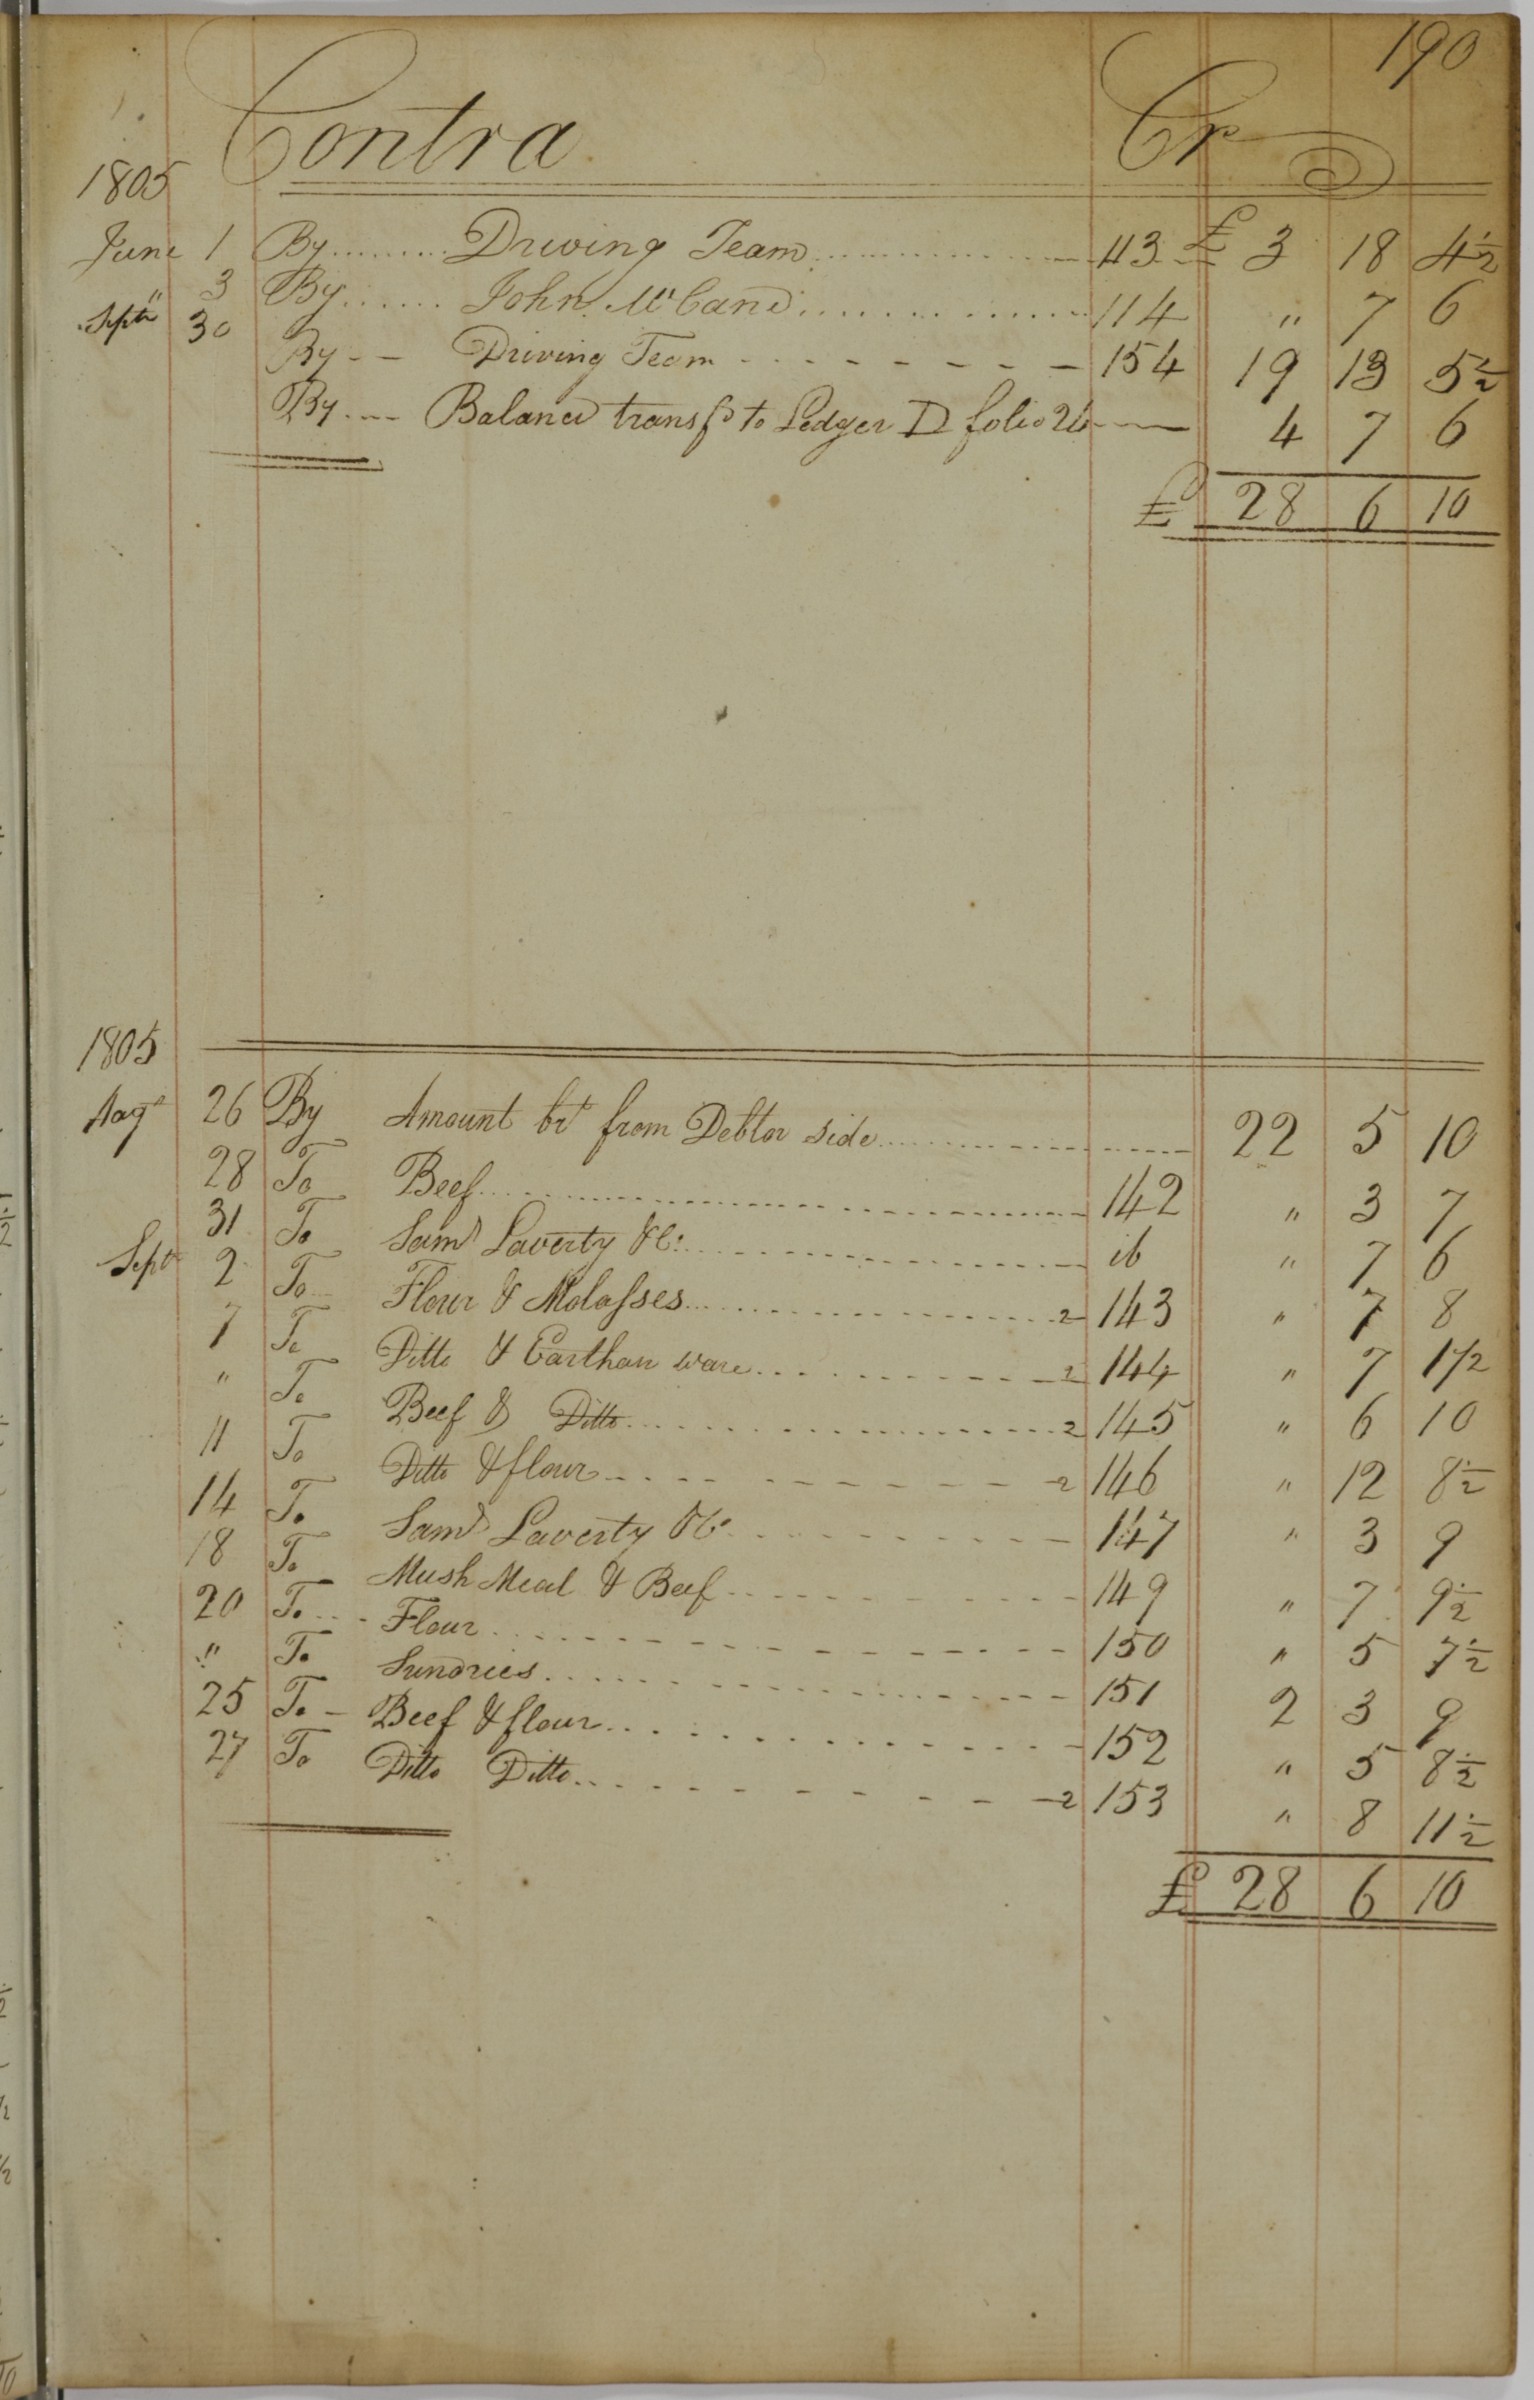 190
Contra Cr
1805
June 1 By ........ Driving Team ........ 113 £ 3 18 4½
" 3 By ...... John McCand ........ 114 " 7 6
Septr 30 By - - Driving Team - - - - - 154 19 13 5½
By --- Balance transfd to Ledger D folio 26 --- 4 7 6
£ 28 6 10
1805
Augt 26 By Amount brt from Debtor side ........ 22 5 10
28 To Beef ........ 142 " 3 7
31 To Saml Laverty &C: ........ ib " 7 6
Septr 2 To Flour & Molasses ........ 2 143 " 7 8
7 To Ditto & Earthan ware ........ 2 144 " 7 1½
" To Beef & Ditto ........ 2 145 " 6 10
11 To Ditto & flour - - - - - 2 146 " 12 8½
14 To Saml Laverty &C - - - - - 147 " 3 9
18 To Mush Meal & Beef - - - - - 149 " 7 9½
20 To Flour - - - - - 150 " 5 7½
" To Sundries - - - - - 151 2 3 9
25 To - Beef & flour - - - - - 152 " 5 8½
27 To Ditto Ditto - - - - - 2 153 " 8 11½
£ 28 6 10